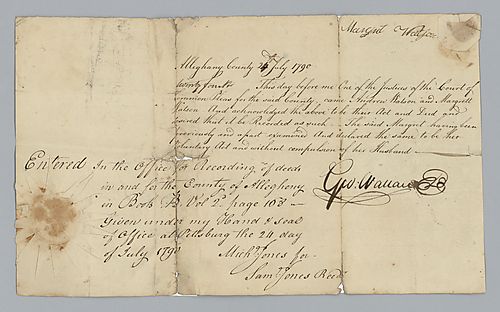 Margrit Watson
Alleghany County 24 July 1790
twenty fourth This day before me One of the Justices of the Court of
Common Pleas for the said County, came Andrew Watson and Margritt
Watson And acknowledged the above to be their Act and Deed and
desired that it be Recorded as such — She said Margret being been
previously and apart examined And declared the same to be her
Voluntary Act and without compulsion of her Husband —
Geo. Wallace
Entered In the Office for Recording of deeds
in and for the County of Allegheny
in Book B Vol 2d page 108 —
Given under my Hand & seal
of Office at Pittsburg the 24 day
of July 1790
Michl. Jones for
Saml. Jones Recdr